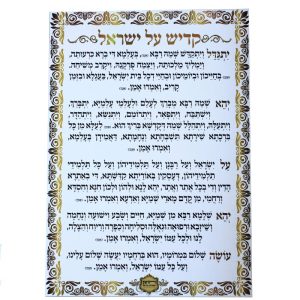 קדיש על ישראל
יִתְגַּדַּל וְיִתְקַדַּשׁ שְׁמֵהּ רַבָּא (אמן) בְּעָלְמָא דִּי בְרָא כִרְעוּתֵהּ,
וְיַמְלִיךְ מַלְכוּתֵהּ, וְיַצְמַח פֻּרְקָנֵהּ, וִיקָרֵב מְשִׁיחֵהּ.
(אמן) בְּחַיֵּיכוֹן וּבְיוֹמֵיכוֹן וּבְחַיֵּי דְכָל בֵּית יִשְׂרָאֵל, בַּעֲגָלָא וּבִזְמַן
קָרִיב, וְאִמְרוּ אָמֵן.
יְהֵא שְׁמֵהּ רַבָּא מְבָרַךְ לְעָלַם וּלְעָלְמֵי עָלְמַיָּא, יִתְבָּרַךְ,
וְיִשְׁתַּבַּח, וְיִתְפָּאַר, וְיִתְרוֹמַם, וְיִתְנַשֵּׂא, וְיִתְהַדָּר,
וְיִתְעַלֶּה, וְיִתְהַלָּל שְׁמֵהּ דְּקֻדְשָׁא בְּרִיךְ הוּא. (אמן) לְעֵלָּא מִן כָּל
בִּרְכָתָא שִׁירָתָא תֻּשְׁבְּחָתָא וְנֶחָמָתָא, דַּאֲמִירָן בְּעָלְמָא,
וְאִמְרוּ אָמֵן.
עַל יִשְׂרָאֵל וְעַל רַבָּנָן וְעַל תַּלְמִידֵיהוֹן וְעַל כָּל תַּלְמִידֵי
תַלְמִידֵיהוֹן, דְּעָסְקִין בְּאוֹרַיְתָא קַדִּשְׁתָּא, דִּי בְאַתְרָא
הָדֵין וְדִי בְכָל אֲתַר וַאֲתַר, יְהֵא לָנָא וּלְהוֹן וּלְכוֹן חִנָּא וְחִסְדָּא
וְרַחֲמֵי, מִן קֳדָם מָארֵי שְׁמַיָּא וְאַרְעָא, וְאִמְרוּ אָמֵן.
יְהֵא שְׁלָמָא רַבָּא מִן שְׁמַיָּא, חַיִּים וְשָׂבָע וִישׁוּעָה וְנֶחָמָה
וְשֵׁיזָבָא וּרְפוּאָה וּגְאֻלָּה וּסְלִיחָה וְכַפָּרָה וְרֶוַח וְהַצָּלָה,
לָנוּ וּלְכָל עַמּוֹ יִשְׂרָאֵל, וְאִמְרוּ אָמֵן.
עוֹשֶׂה שָׁלוֹם בִּמְרוֹמָיו, הוּא בְּרַחֲמָיו יַעֲשֶׂה שָׁלוֹם עָלֵינוּ,
וְעַל כָּל עַמּוֹ יִשְׂרָאֵל, וְאִמְרוּ אָמֵן.